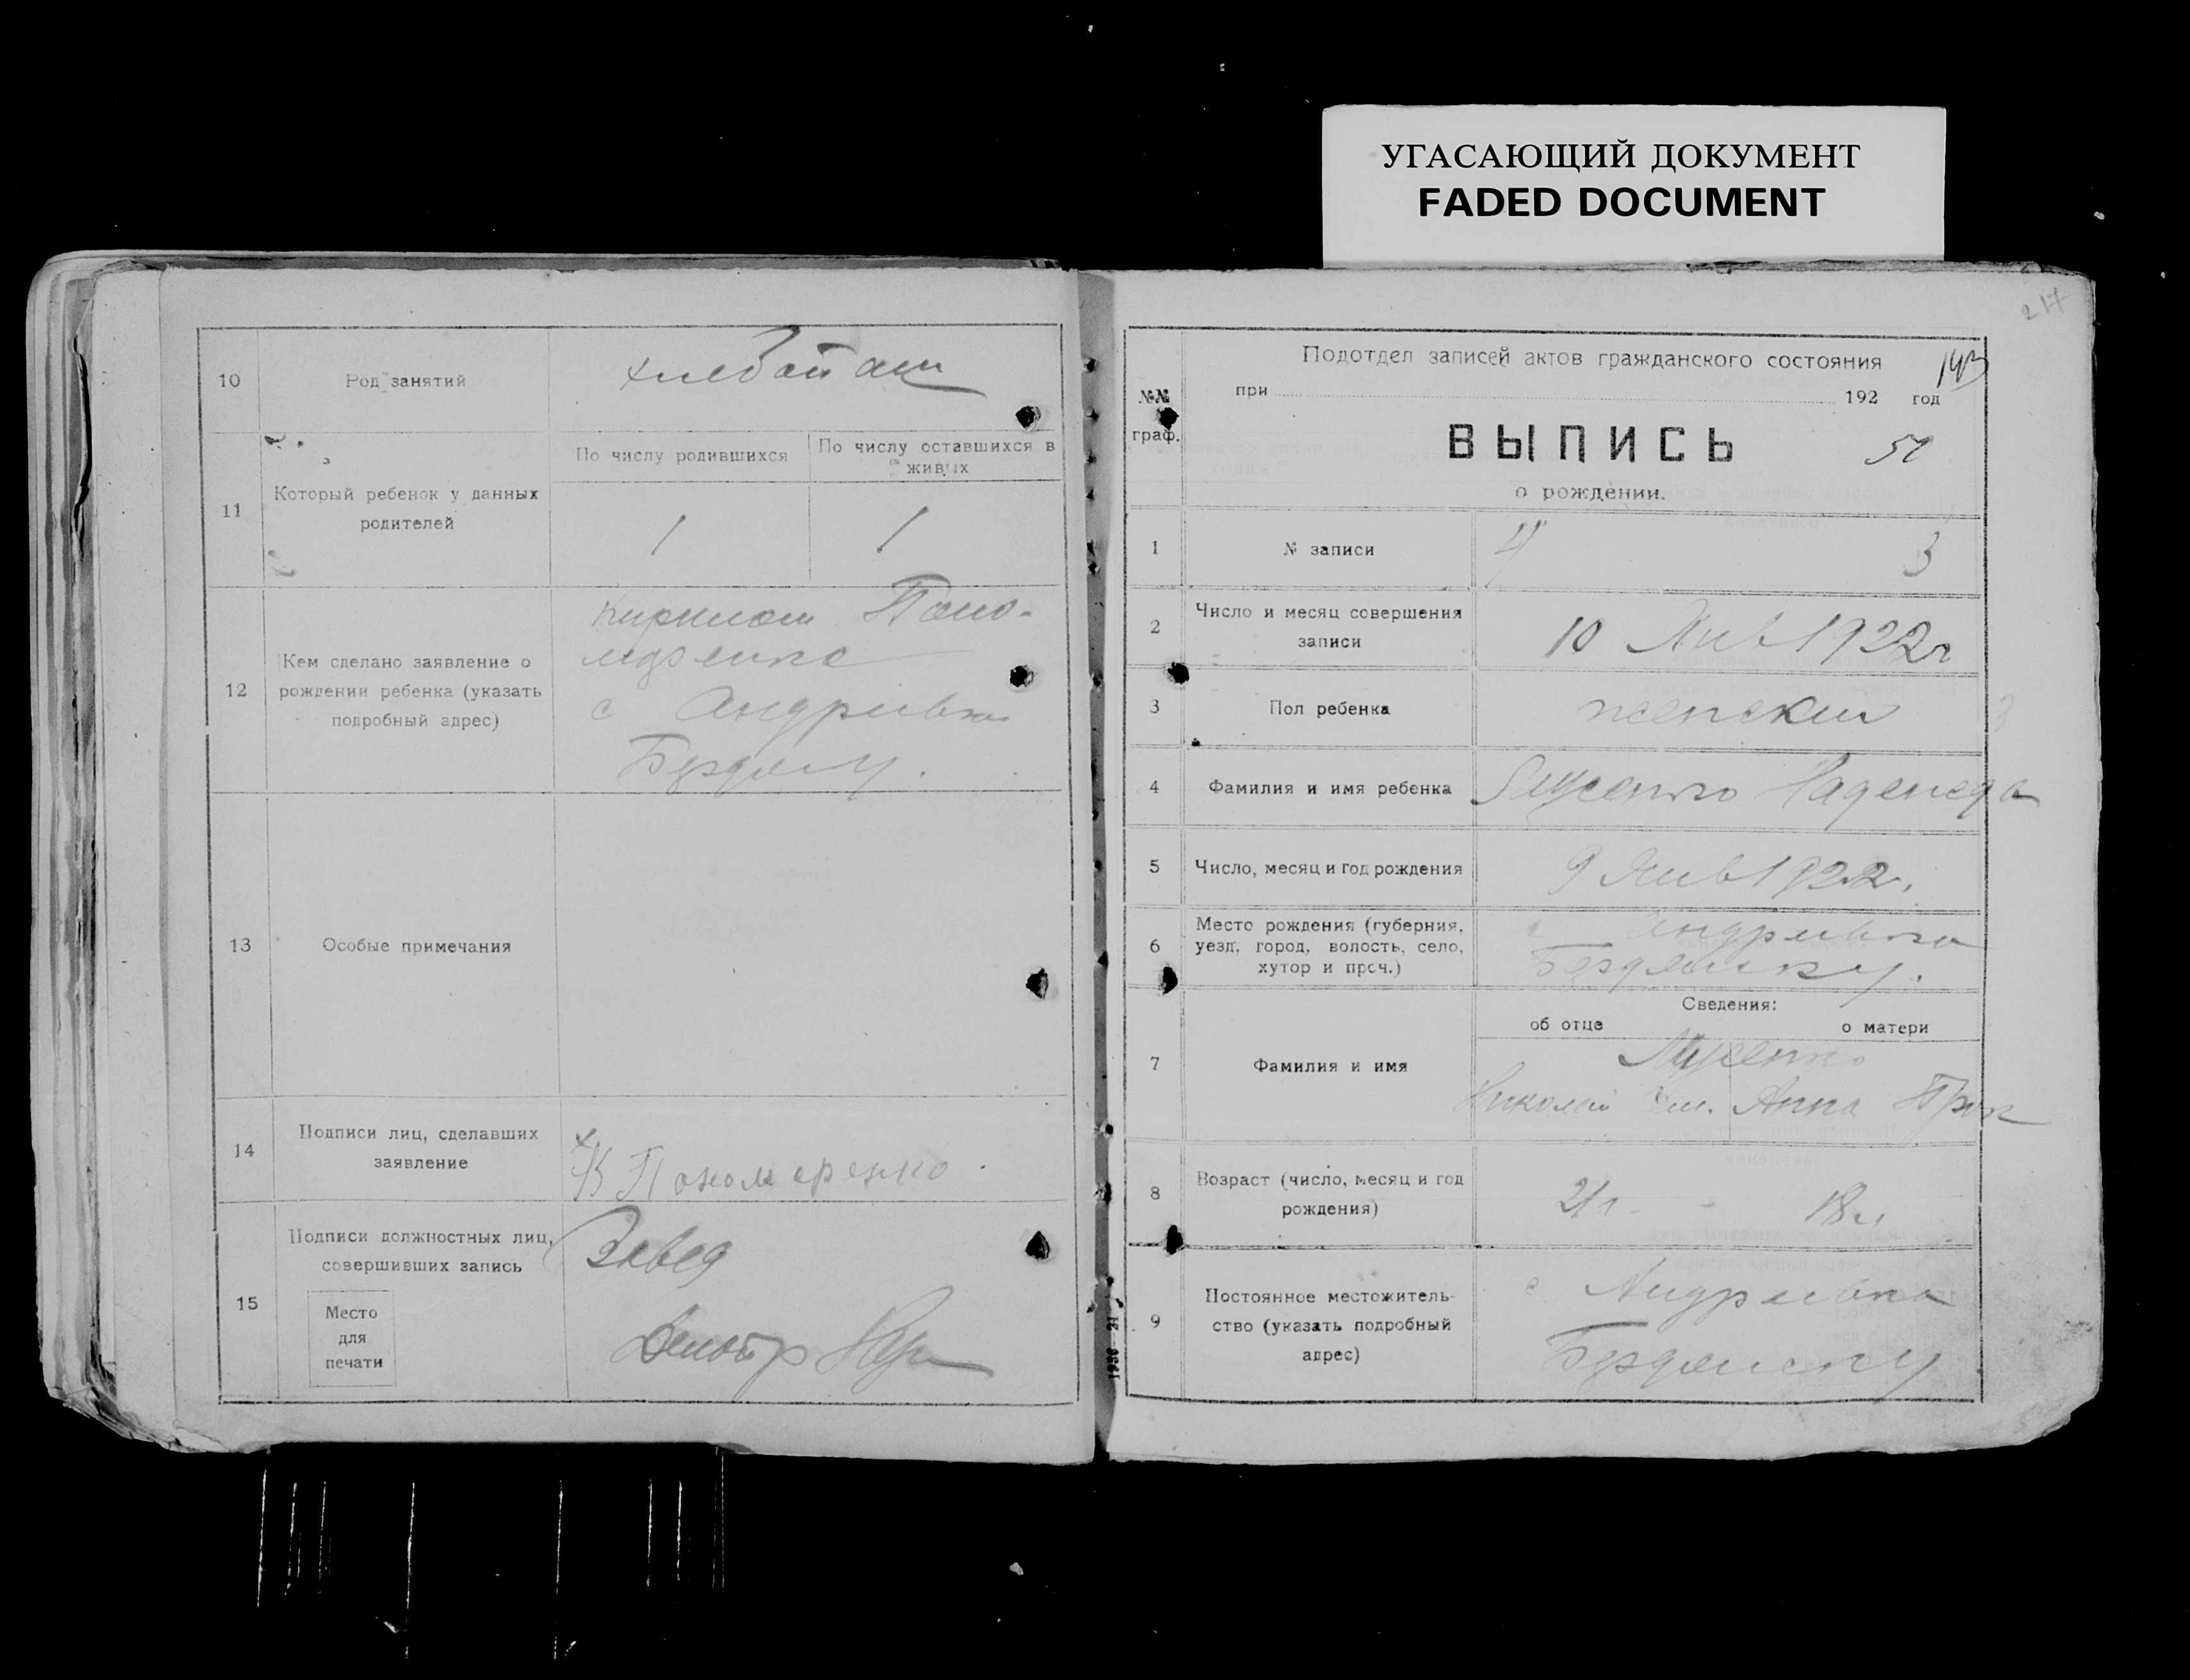 УГАСАЮЩИЙ ДОКУМЕНТ
FADED DOCUMENT
10
Род занятий
хлебопаш
11
Который ребенок у данных
родителей
По числу родившихся
По числу оставшихся в
живых
1
1
12
Кем сделано заявление о
рождении ребенка (указать
подробный адрес)
с Андриевка
13
Особые примечания
14
Подписи лиц, сделавших
заявление
К Пономаренко
15
Подписи должностных лиц,
совершивших запись
Место
для
печати
Завед
217
№№
граф.
Подотдел записей актов гражданского состояния
143
при 192 год
ВЫПИСЬ
о рождении.
1
№ записи
3
2
Число и месяц совершения
записи
10 Янв 1922 г
3
Пол ребенка
женский
4
Фамилия и имя ребенка
Надежда
5
Число, месяц и год рождения
9 Янв 1922.
6
Место рождения (губерния,
уезд, город, волость, село,
хутор и проч.)
с Андриевка
Бердянску.
7
Фамилия и имя
Сведения:
об отце
о матери
Николай
Анна Прок
8
Возраст (число, месяц и год
рождения)
21 г
18 л
9
Постоянное местожитель-
ство (указать подробный
адрес)
с Андриевка
Бердянску